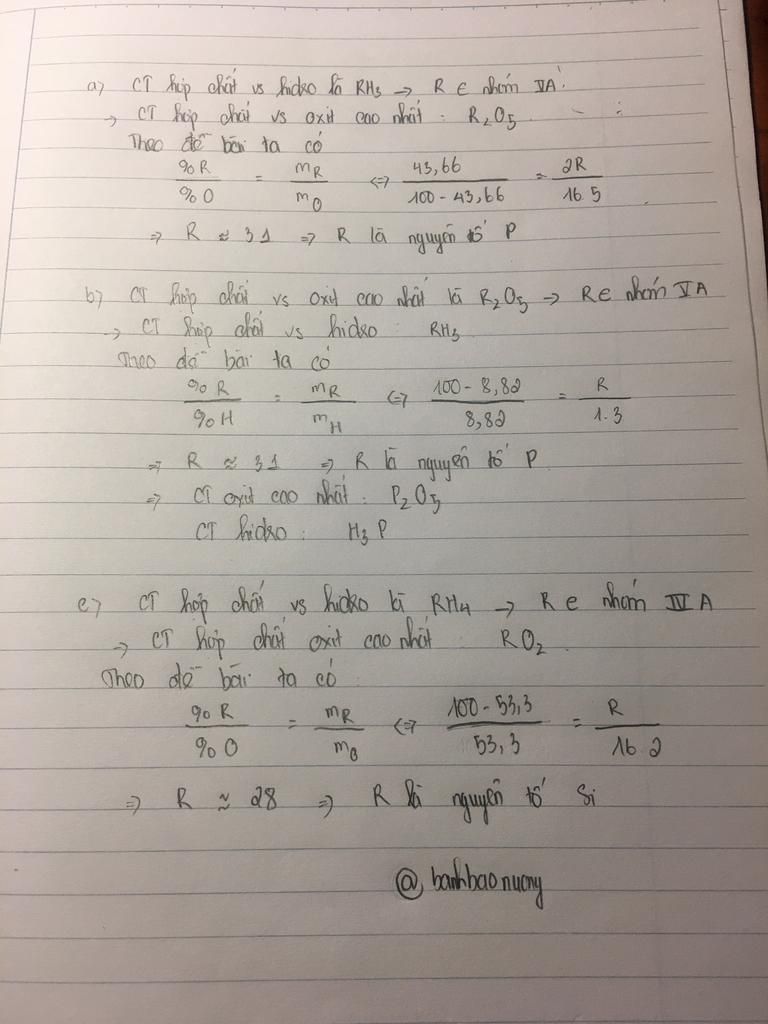 a) CT hợp chất vs hidro là RH₃ → R ∈ nhóm VA.
→ CT hợp chất vs oxit cao nhất : R₂O₅.
Theo đề bài ta có
%R / %O = mR / mO <=> 43,66 / 100 - 43,66 = 2R / 16.5
=> R ≈ 31 => R là nguyên tố P
b) CT hợp chất vs oxit cao nhất là R₂O₅ → R ∈ nhóm VA
→ CT hợp chất vs hidro : RH₃
Theo đề bài ta có
%R / %H = mR / mH <=> 100 - 8,82 / 8,82 = R / 1.3
=> R ≈ 31 => R là nguyên tố P.
=> CT oxit cao nhất : P₂O₅
CT hidro : H₃P
c) CT hợp chất vs hidro là RH₄ → R ∈ nhóm IVA
→ CT hợp chất oxit cao nhất RO₂.
Theo đề bài ta có :
%R / %O = mR / mO <=> 100 - 53,3 / 53,3 = R / 16.2
=> R ≈ 28 => R là nguyên tố Si
@banhbaonuong